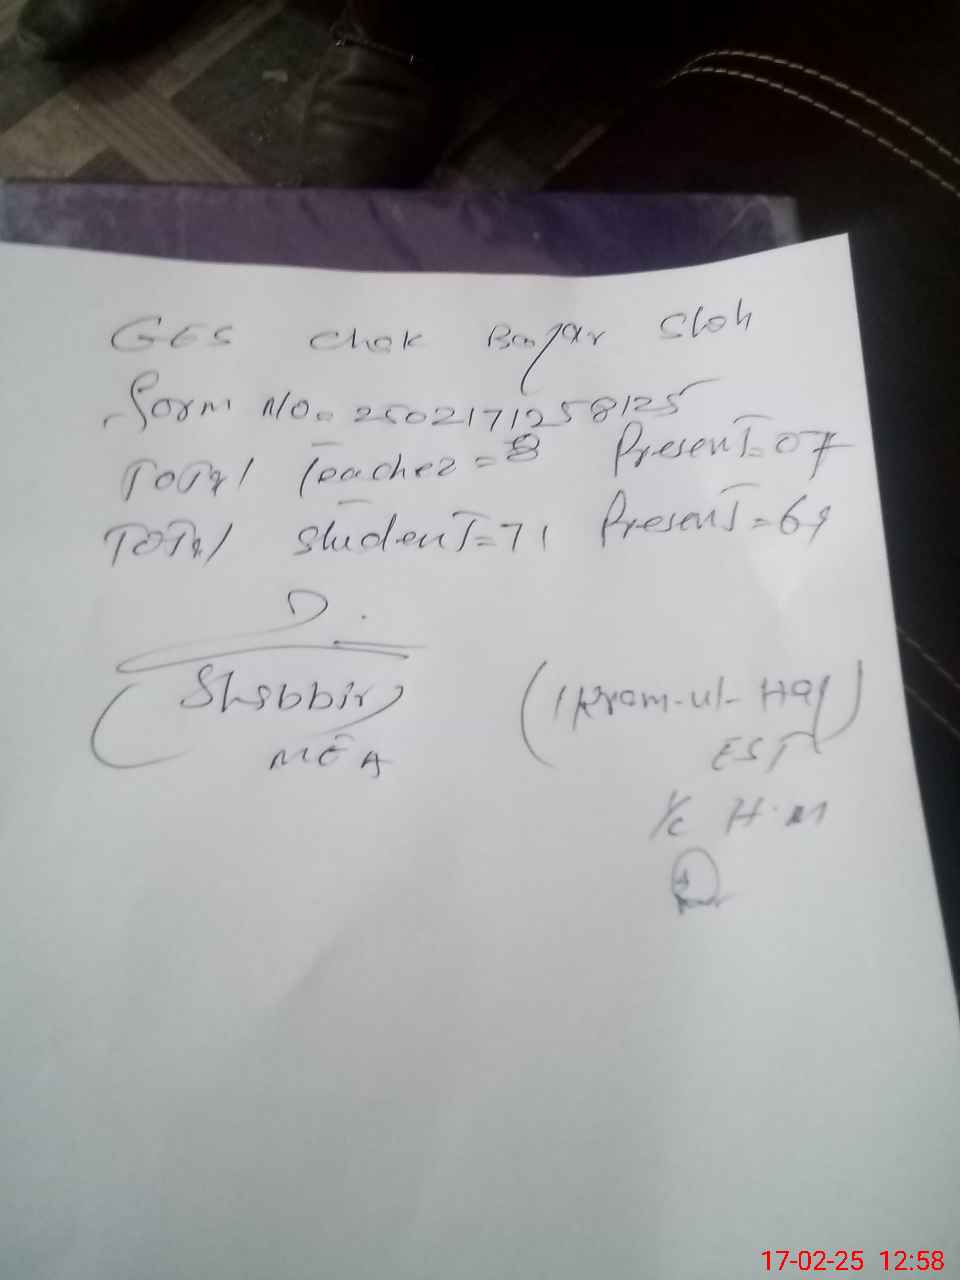 GES Chak Bazar Sloh
Form No. 2502171258125
Total Teacher = 8 Present = 07
Total Student = 71 Present = 69
(Shabbir)
MEA
(Ikram-ul-Haq)
EST
I/C H.M
17-02-25 12:58